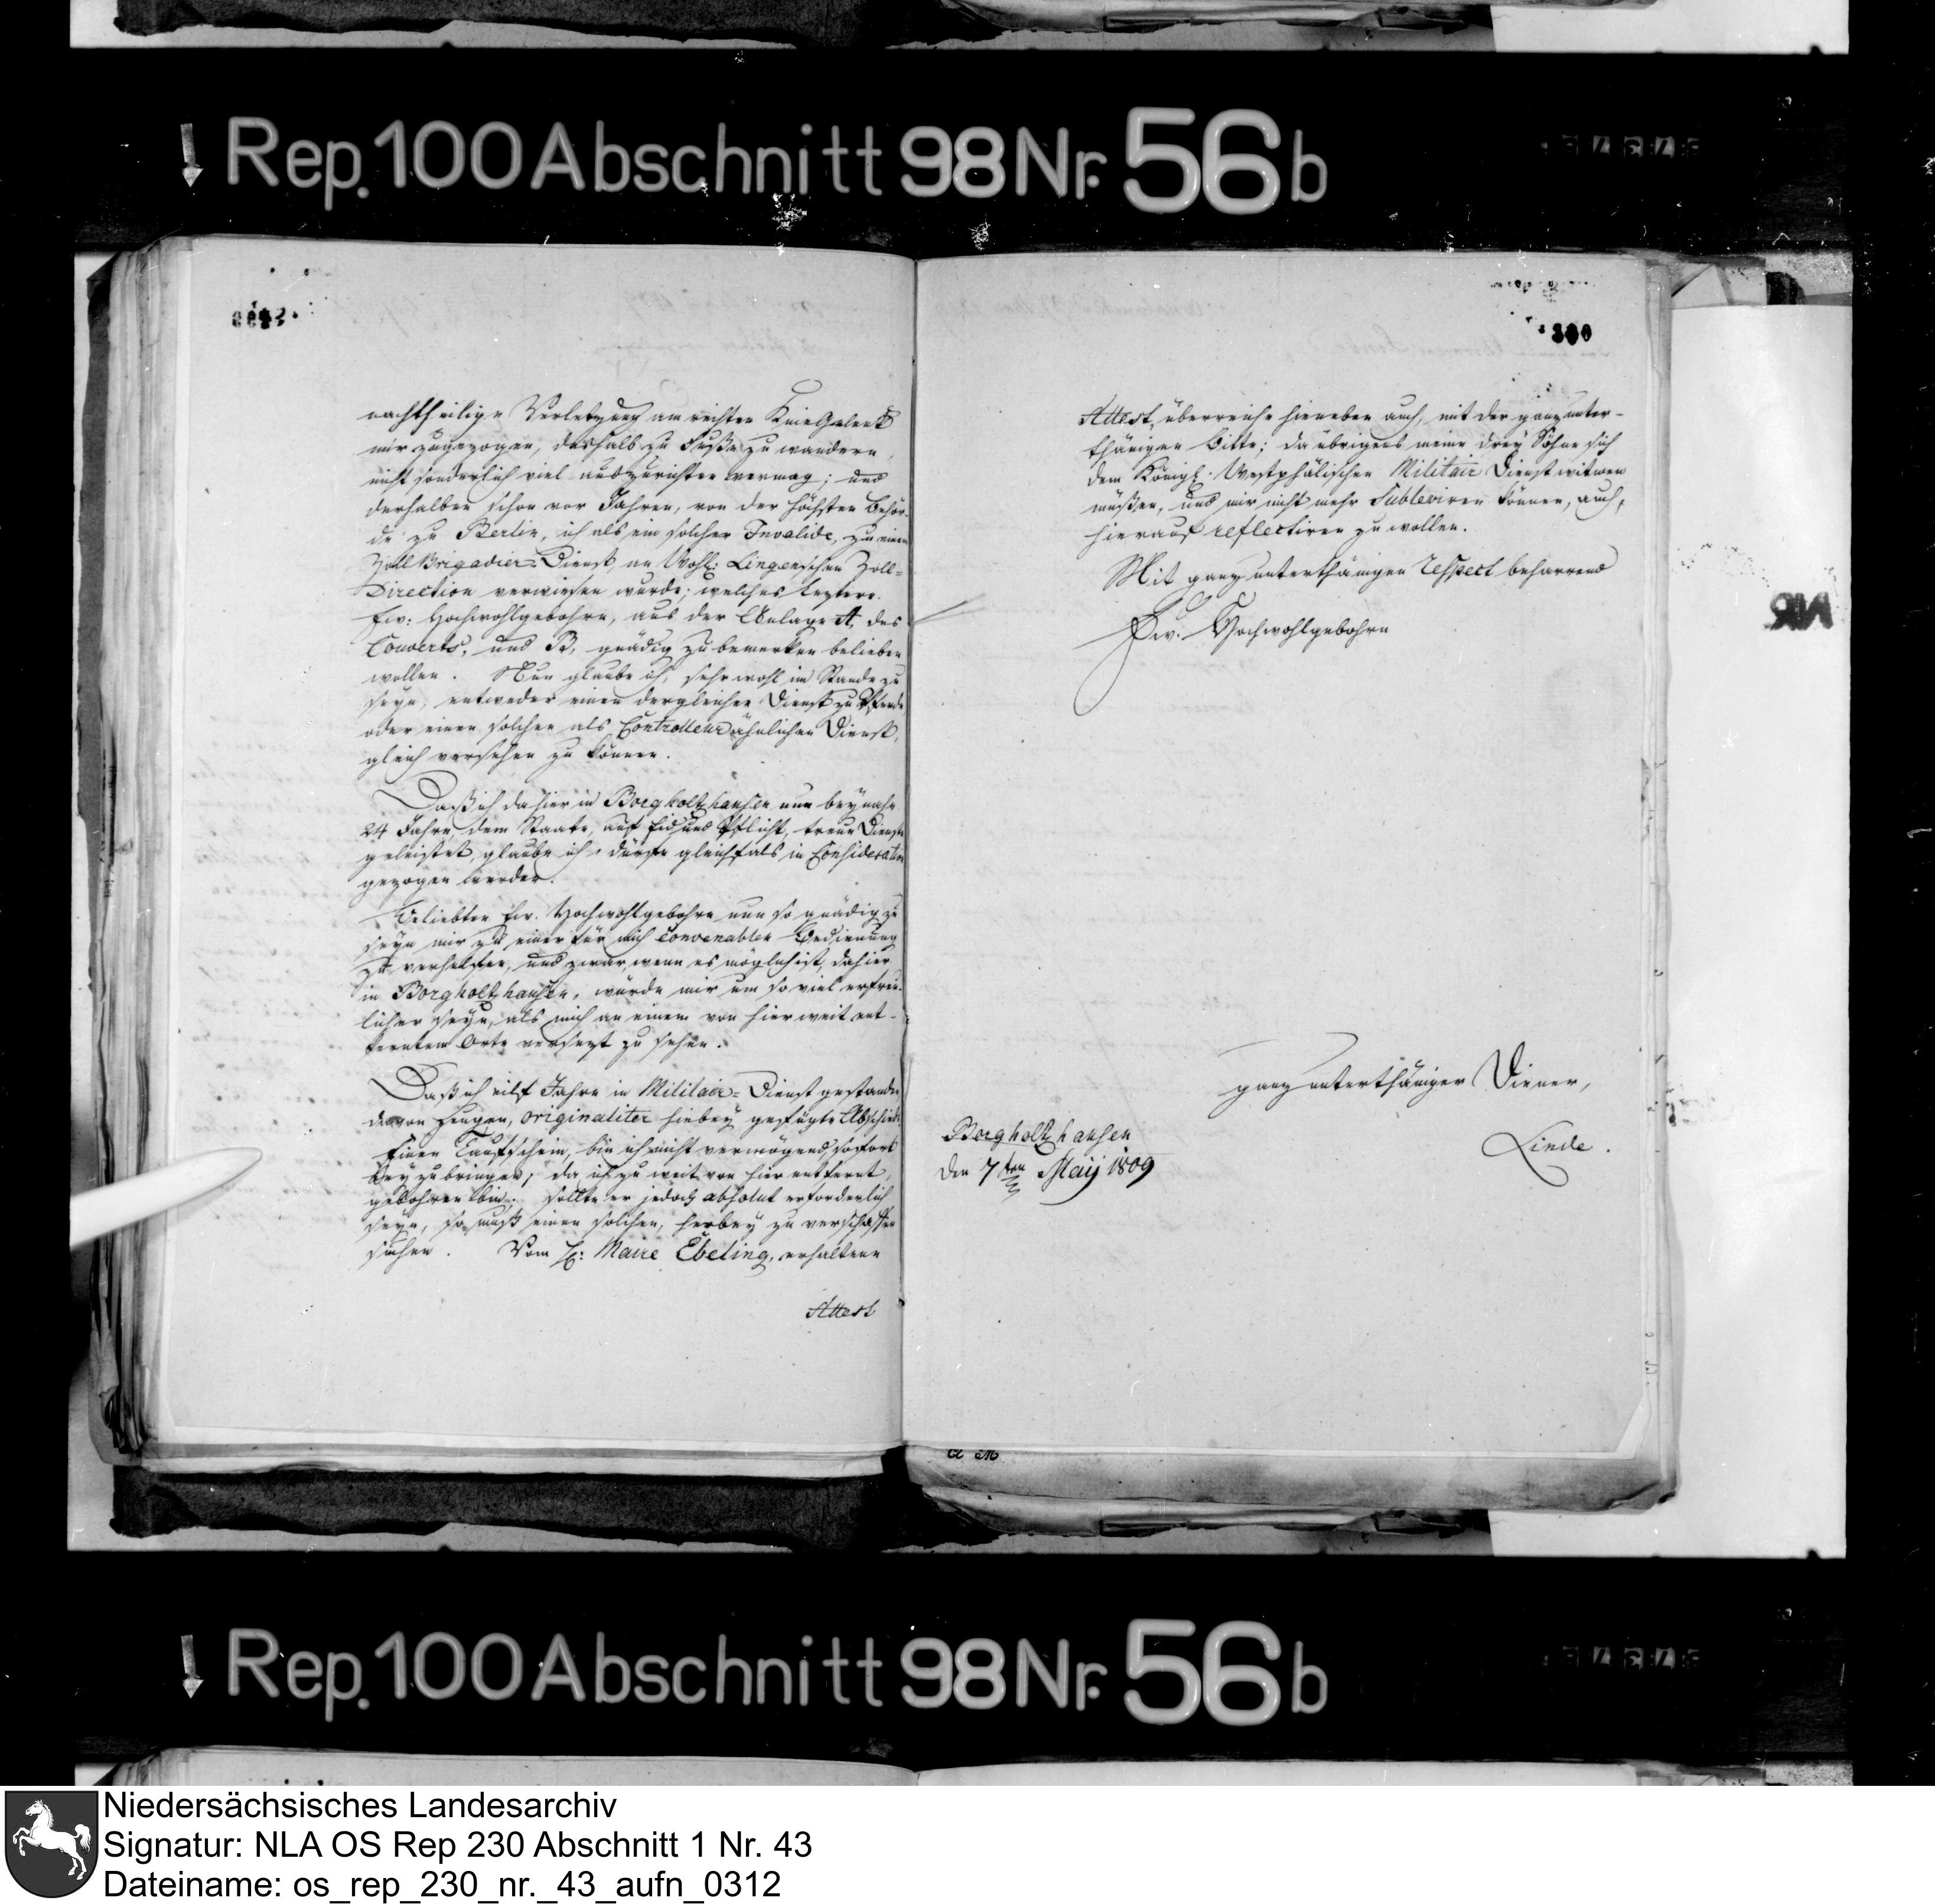 Rep. 100 Abschnitt 98 Nr. 56 b
nachtheilige Verletzung am rechten Knie Gelenk
mir zugezogen, deshalb zu Fuße zu wandern,
nicht sonderlich viel auszurichten vermag; und
derhalben schon vor Jahren, von der höchsten Behör-
de zu Berlin, ich als ein solcher Invalide, zu einem
Zoll Brigadier-Dienst, an Wohl: Lingenschen Zoll=
Direction verwiesen wurde; welches leztere.
Ew: Hochwohlgebohrn, aus der Anlage A, des
Couverts, und B, gnädig zu bemerken belieben
wollen. Nun glaube ich, sehr wohl im Stande zu
seyn, entweder einen dergleichen Dienst zu Pferde
oder einen solchen als Controlleur ähnlichen Dienst,
gleich versehen zu können.
Daß ich dahier in Borgholtzhausen nun beynahe
24 Jahre, dem Staate, auf Eid und Pflicht, treue Dienste
geleistet, glaube ich, dürfte gleichfals in Consideration
gezogen werden.
Beliebten Ew. Hochwohlgebohrn nun so gnädig zu
seyn mir zu einer für mich convenablen Bedienung
zu verhelfen, und zwar, wenn es möglich ist, dahier
in Borgholtzhausen, würde mir um so viel erfreu-
licher seyn, als mich an einem von hier weit ent-
fernten Orte versezt zu sehen.
Daß ich eilf Jahre in Militair=Dienst gestanden
davon zeugen, originaliter hiebey gefügte Abschiede
Einen Taufschein, bin ich nicht vermögend sofort
beyzubringen, da ich zu weit von hier entfernt,
gebohren bin. Sollte er jedoch absolut erforderlich
seyn, so muß einen solchen, herbey zu verschaffen
suchen. Vom H: Maire Ebeling, erhaltene
Attest
300
Attest, überreiche hieneben auch, mit der ganz unter-
thänigen Bitte; da übrigens meine drey Söhne sich
dem Königl: Westphälischen Militair Dienst witmen
müßen, und mir nicht mehr subleviren können, auch,
hierauf reflectiren zu wollen.
Mit ganz unterthänigen Respect beharrend
Ew. Hochwohlgebohrn
ganz unterthäniger Diener,
Linde.
Borgholtzhausen
den 7ten Maij 1809
Rep. 100 Abschnitt 98 Nr. 56 b
Niedersächsisches Landesarchiv
Signatur: NLA OS Rep 230 Abschnitt 1 Nr. 43
Dateiname: os_rep_230_nr._43_aufn_0312